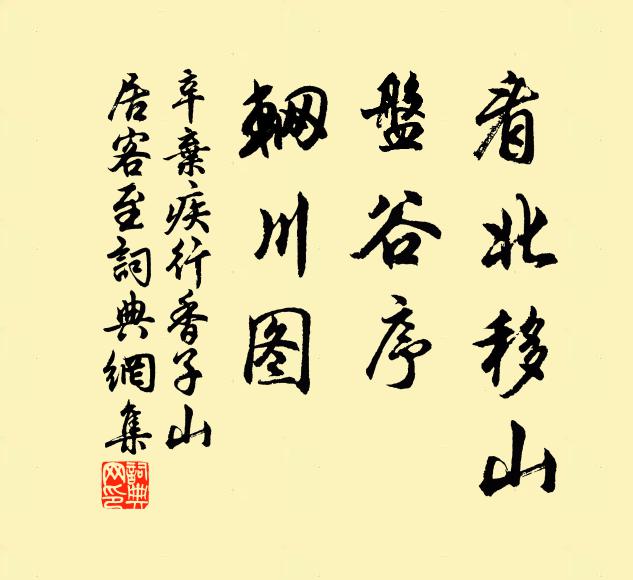 看北移山
盤谷序
輞川图
辛棄疾行香子山
居客至詞典網集
詞典
网印